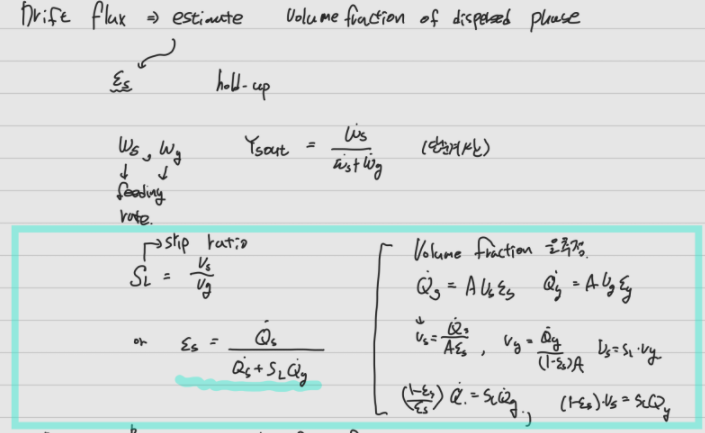 Drift flux ⇒ estimate volume fraction of dispersed phase
εs hold-up
Ws, Wg Ysout = ẇs / (ẇs + ẇg)
↓ ↓
feeding
rate.
→ slip ratio
SL = Vs / Vg
or εs = Q̇s / (Q̇s + SL Q̇g)
Volume fraction
Q̇s = A Us εs Q̇g = A Ug εg
↓
Us = Q̇s / (A εs) , Vg = Q̇g / ((1-εs) A) Us = SL · Vg
((1-εs) / εs) Q̇ = SL Q̇g , (1-εs) · Us = SL Qg